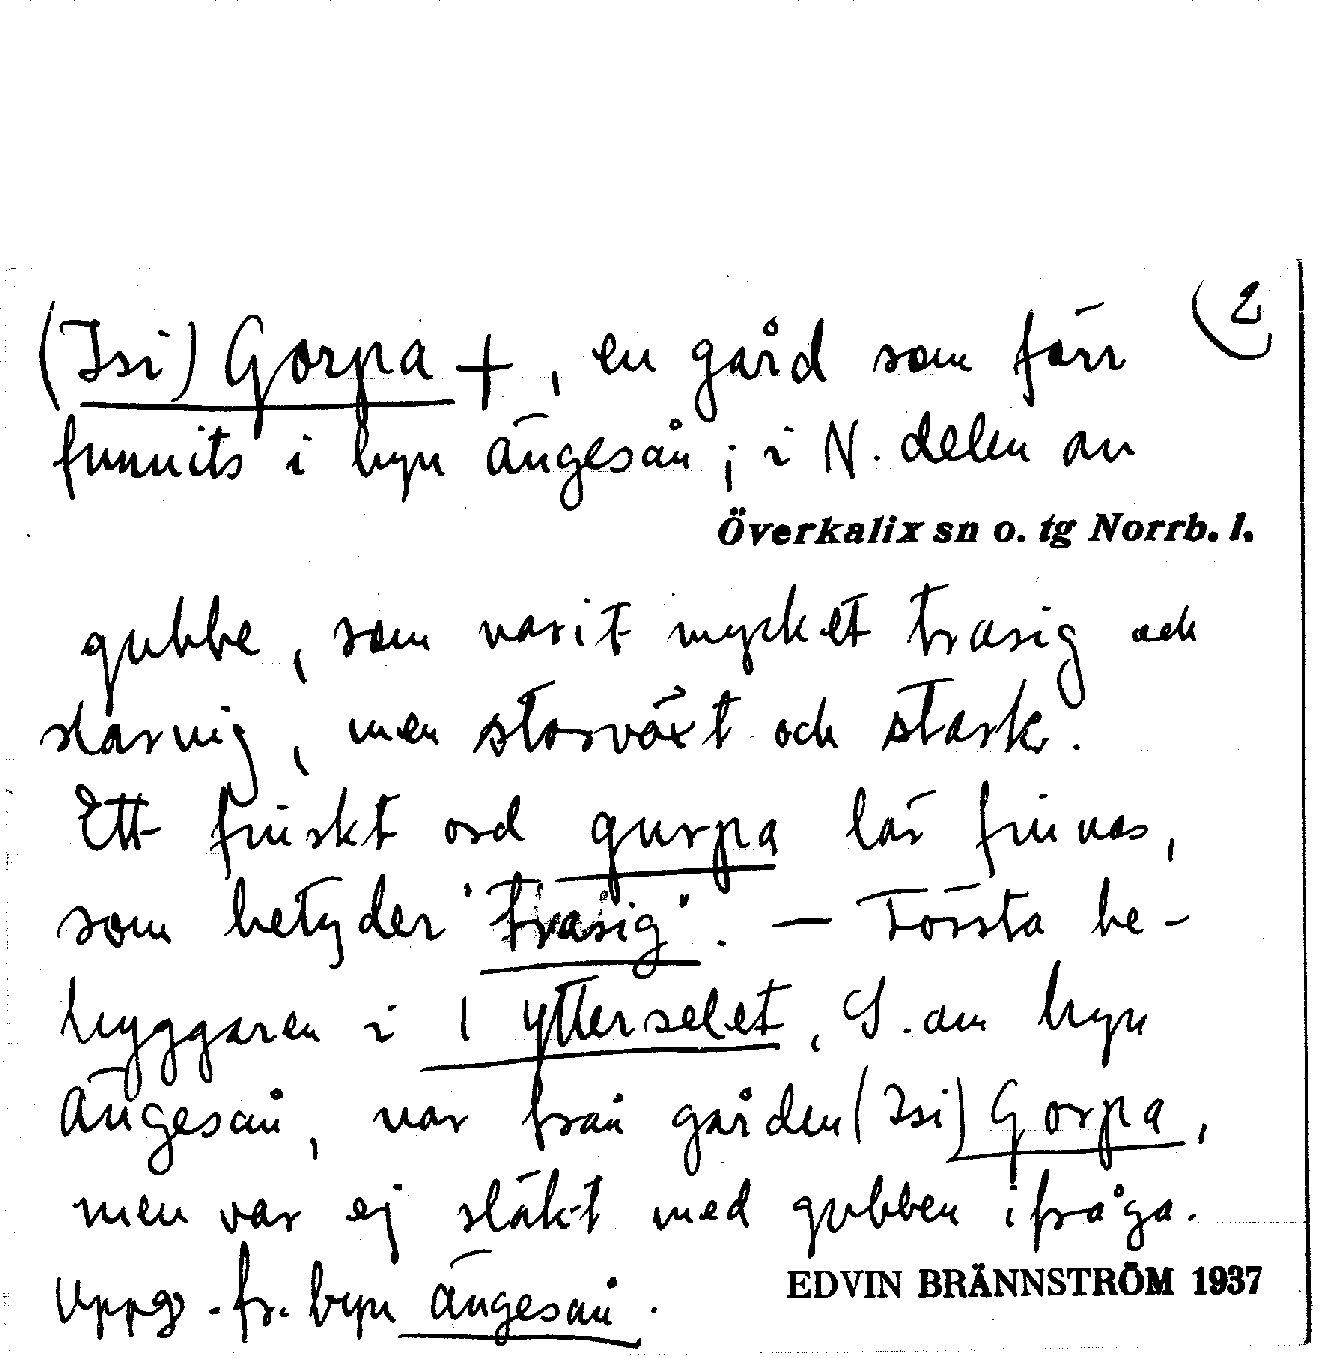 2
(Isi) Gorpa +, en gård som förr
funnits i byn Ängesån; i N. delen av
Överkalix sn o. tg Norrb. l.
gubbe, som varit mycket trasig och
slarvig, men storväxt och stark.
Ett finskt ord gurpa lär finnas,
som betyder 'trasig'. — Första be-
byggaren i Ytterselet, S. om byn
Ängesån, var från gården (Isi) Gorpa,
men var ej släkt med gubben ifråga.
Uppg. fr. byn Ängesån.
EDVIN BRÄNNSTRÖM 1937